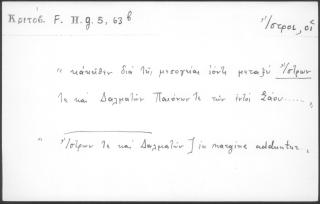 Κριτόβ. F. H. g. 5, 63 b
Ἴστροι, οἱ
" κἀκεῖθεν διὰ τῆς μεσογείας ἰόντι μεταξὺ Ἴστρων
τε καὶ Δαλματῶν Παιόνων τε τῶν ἐντὸς Σάου.....,
" Ἴστρων τε καὶ Δαλματῶν ] in margine adduntur.